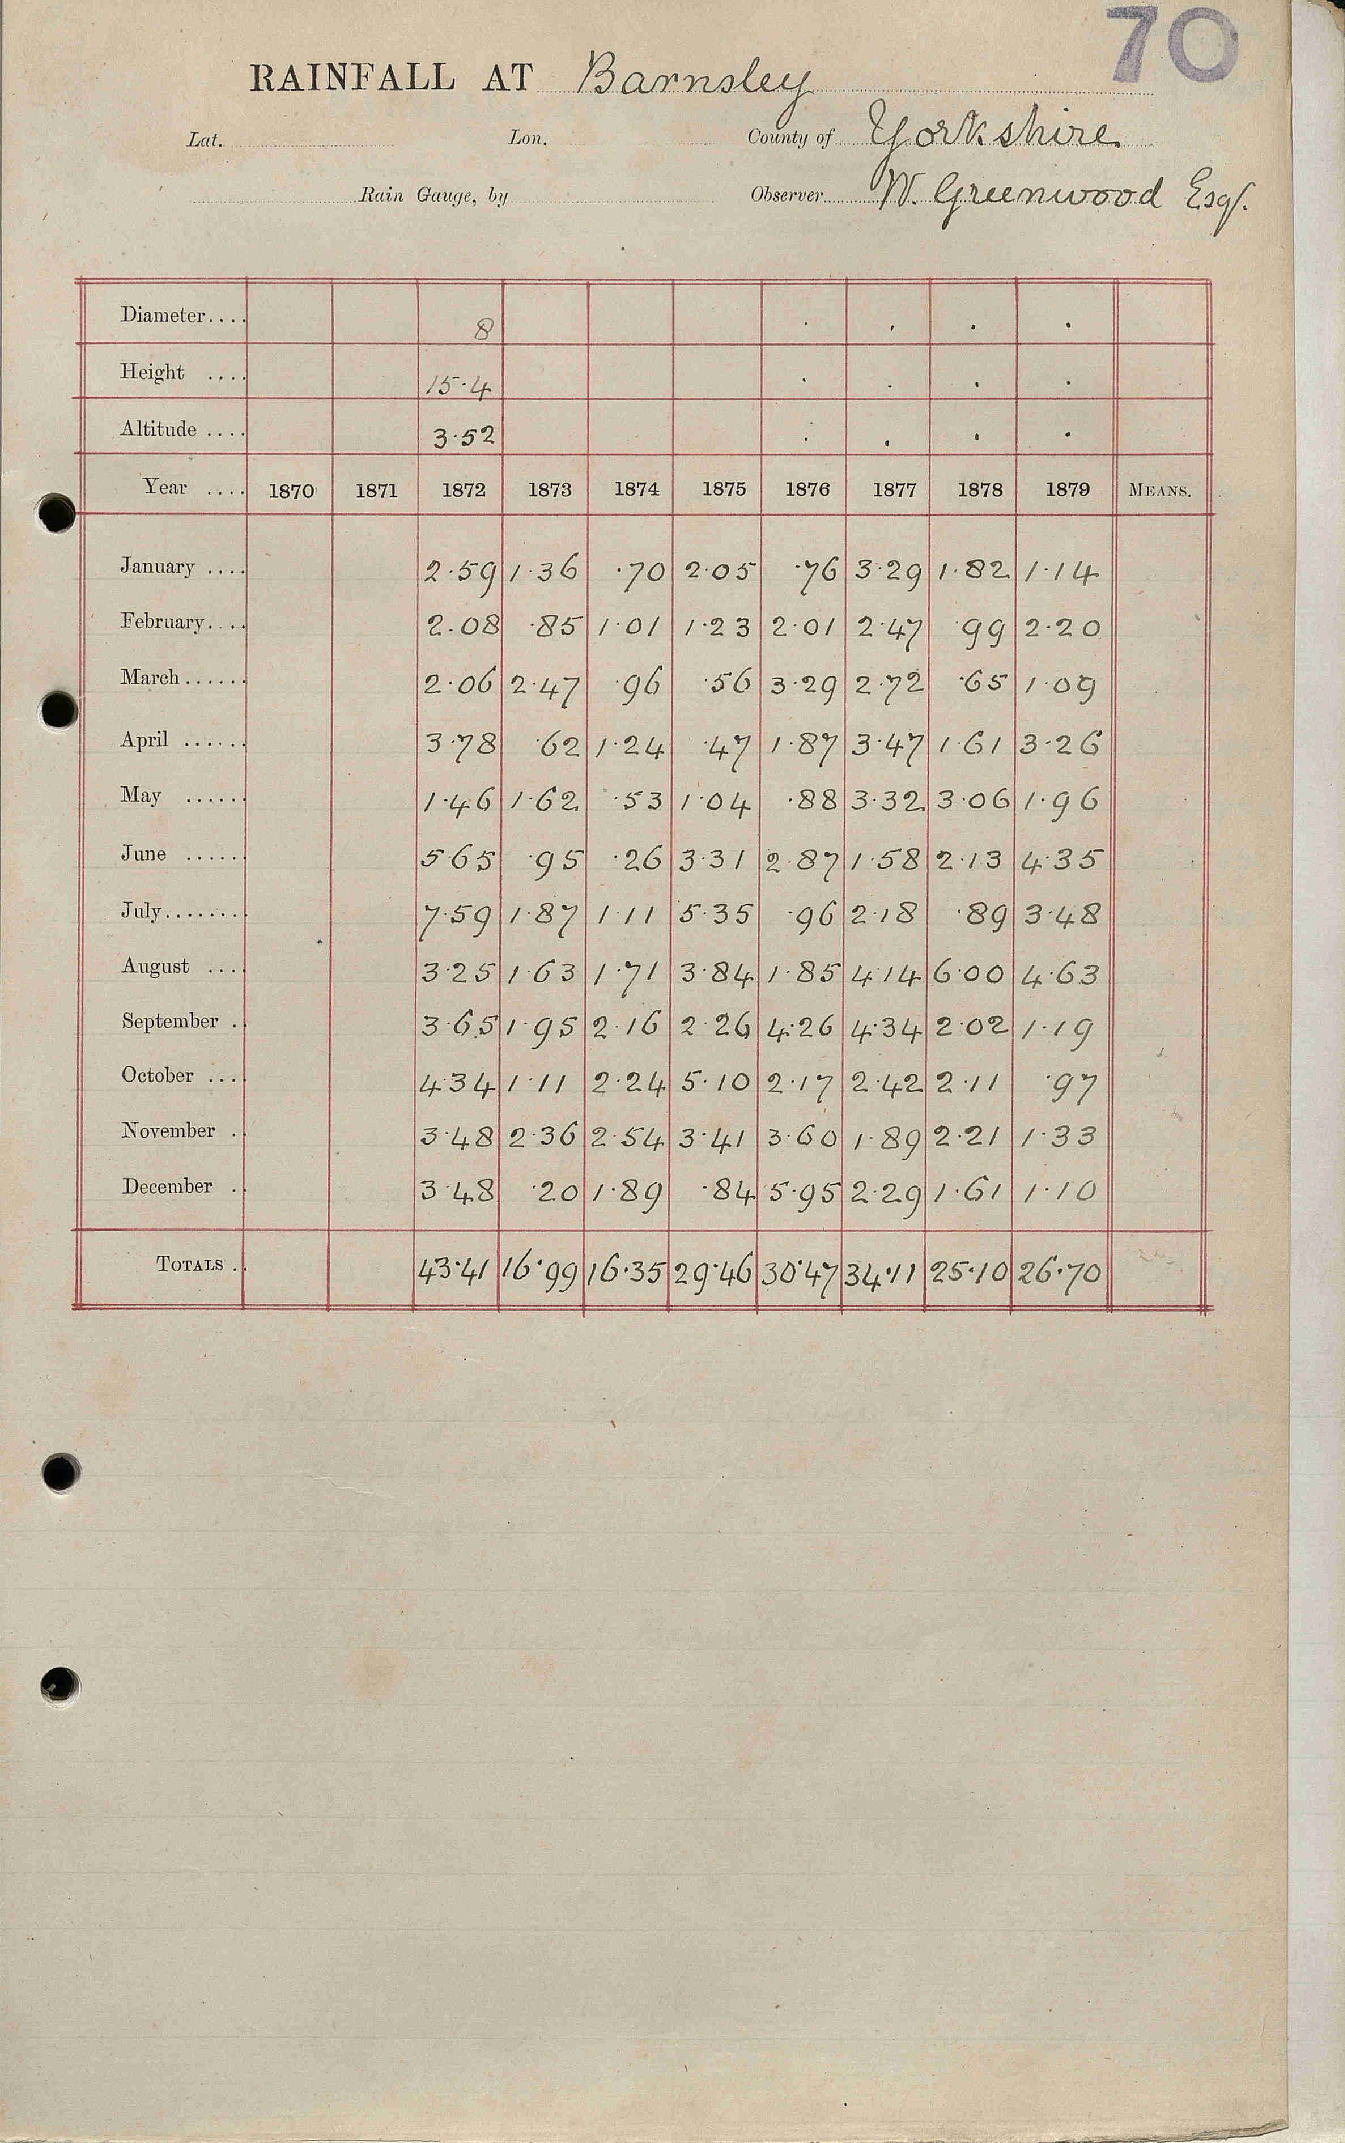 70
RAINFALL AT Barnsley
Lat. Lon. County of Yorkshire
Rain Gauge, by Observer W. Greenwood Esq.
Diameter.... 8
Height .... 15.4
Altitude .... 3.52
Year .... 1870 1871 1872 1873 1874 1875 1876 1877 1878 1879 MEANS.
January .... 2.59 1.36 .70 2.05 .76 3.29 1.82 1.14
February.... 2.08 .85 1.01 1.23 2.01 2.47 .99 2.20
March...... 2.06 2.47 .96 .56 3.29 2.72 .65 1.09
April ...... 3.78 .62 1.24 .47 1.87 3.47 1.61 3.26
May ...... 1.46 1.62 .53 1.04 .88 3.32 3.06 1.96
June ...... 5.65 .95 .26 3.31 2.87 1.58 2.13 4.35
July........ 7.59 1.87 1.11 5.35 .96 2.18 .89 3.48
August .... 3.25 1.63 1.71 3.84 1.85 4.14 6.00 4.63
September . 3.65 1.95 2.16 2.26 4.26 4.34 2.02 1.19
October ... 4.34 1.11 2.24 5.10 2.17 2.42 2.11 .97
November . 3.48 2.36 2.54 3.41 3.60 1.89 2.21 1.33
December . 3.48 .20 1.89 .84 5.95 2.29 1.61 1.10
TOTALS . 43.41 16.99 16.35 29.46 30.47 34.11 25.10 26.70